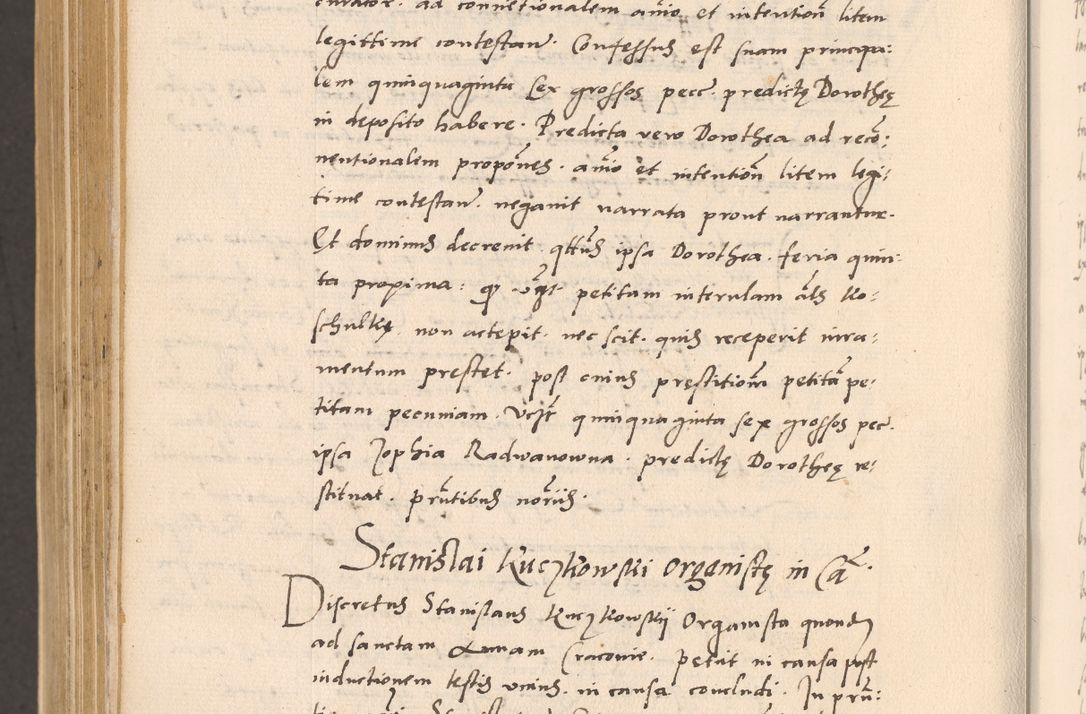 curator. ad convētionalem aīo et intentioñ litem
legittime contestan̄. Confessus est suam principa:
lem quinquaginta sex grossos pecc. predictę Dorothę
in deposito habere. Predicta vero Dorothea ad recō:
nentionalem propōnes. aīo et intentioñ litem legi:
time contestan̄. negauit narrata prout narrantur.
Et dominus decreuit qtt̄us ipsa Dorothea. feria quin:
ta proxima: petitam interulam āls Ko:
schulkę non accepit. nec scit. quis receperit iura:
mentum prestet. post cuius pręstitioñ petitā pe:
titam pecuniam. quinquaginta sex grossos pec.
ipsa Zophia Radwanowna. predictę Dorotheę re:
stituat. prn̄tibus nor̄iis.
Stanislai Kuczkowski Organistę in Cā.
Discretus Stanislaus Kuczkowskij Organista quondam
ad sanctam Annam Cracouie. petiit in causa post
inductionem testis vnius. in causa concludi. In prn̄: